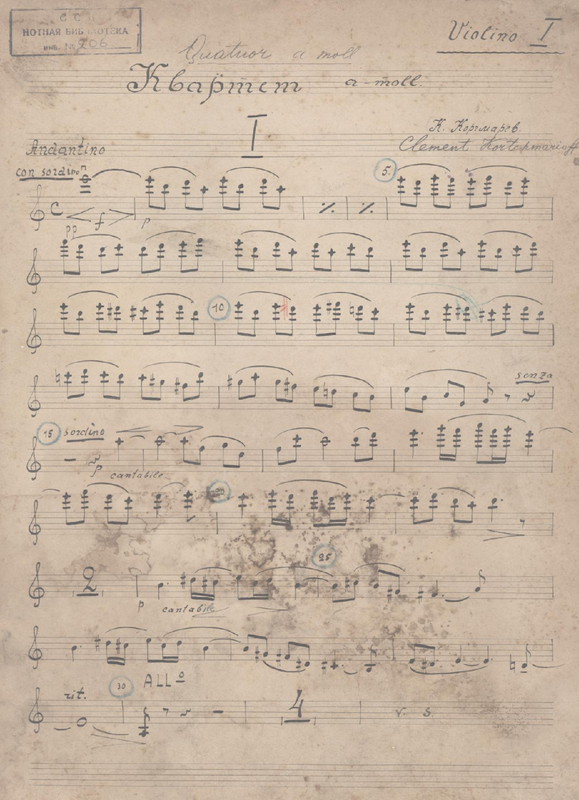 С С
НОТНАЯ БИБЛИОТЕКА
инв. № 206
Violino I
Quatuor a moll
Квартет a-moll
I
Andantino
con sordino
К. Корчмарев.
Clement Kortchmarioff
5.
pp f p
10
senza
15 sordino
p cantabile
20
2
25
p cantabile
rit.
30
ALLo
4
V. S.